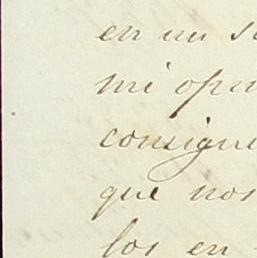 en un s
mi opin
consigue
que nos
los en